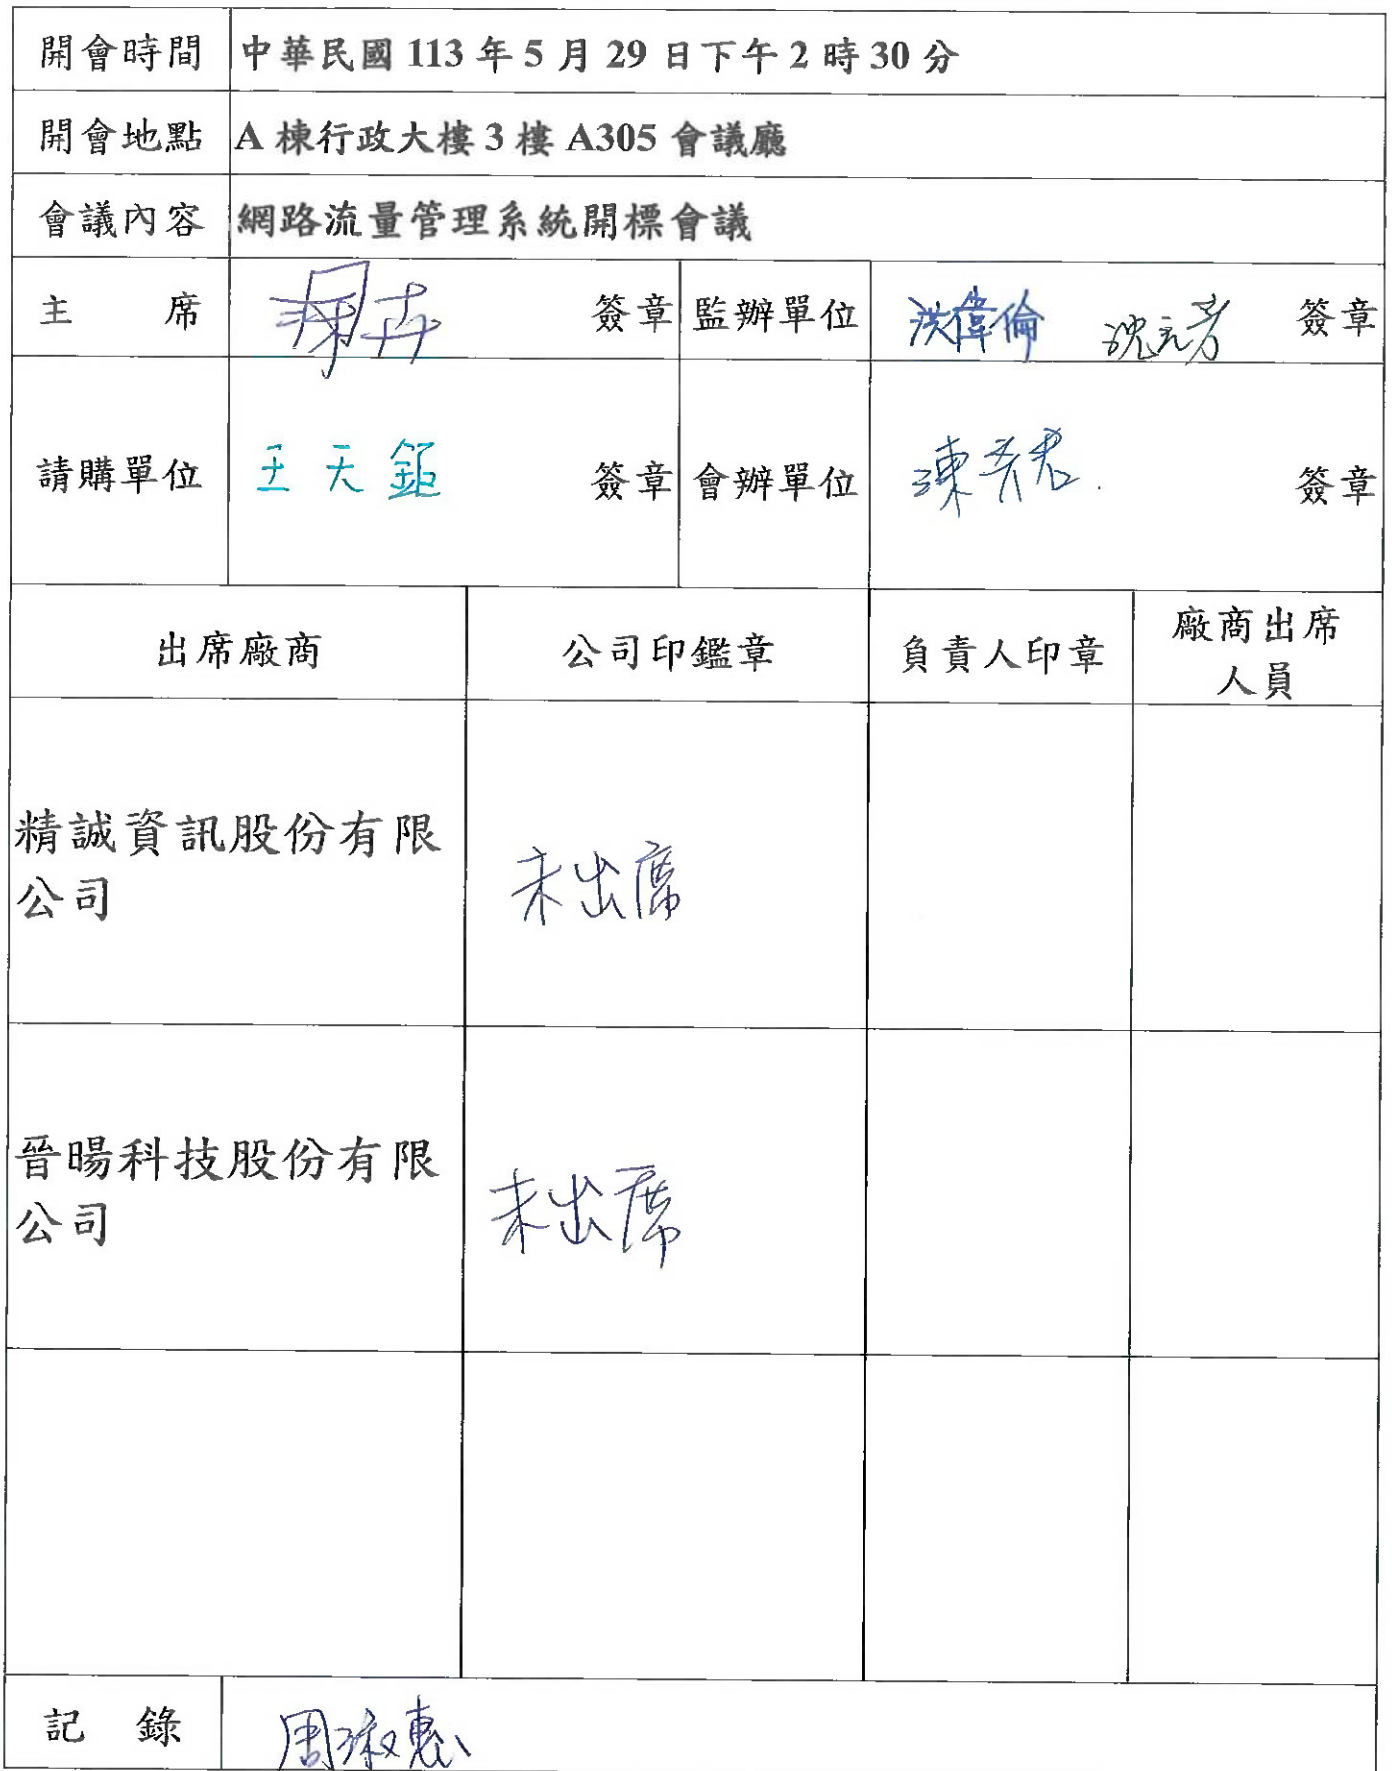 開會時間 中華民國 113 年 5 月 29 日下午 2 時 30 分
開會地點 A 棟行政大樓 3 樓 A305 會議廳
會議內容 網路流量管理系統開標會議
主 席 簽章 監辦單位 洪偉倫 簽章
請購單位 王天鉅 簽章 會辦單位 陳 簽章
出席廠商 公司印鑑章 負責人印章 廠商出席
人員
精誠資訊股份有限
公司
未出席
晉暘科技股份有限
公司
未出席
記 錄 周淑惠